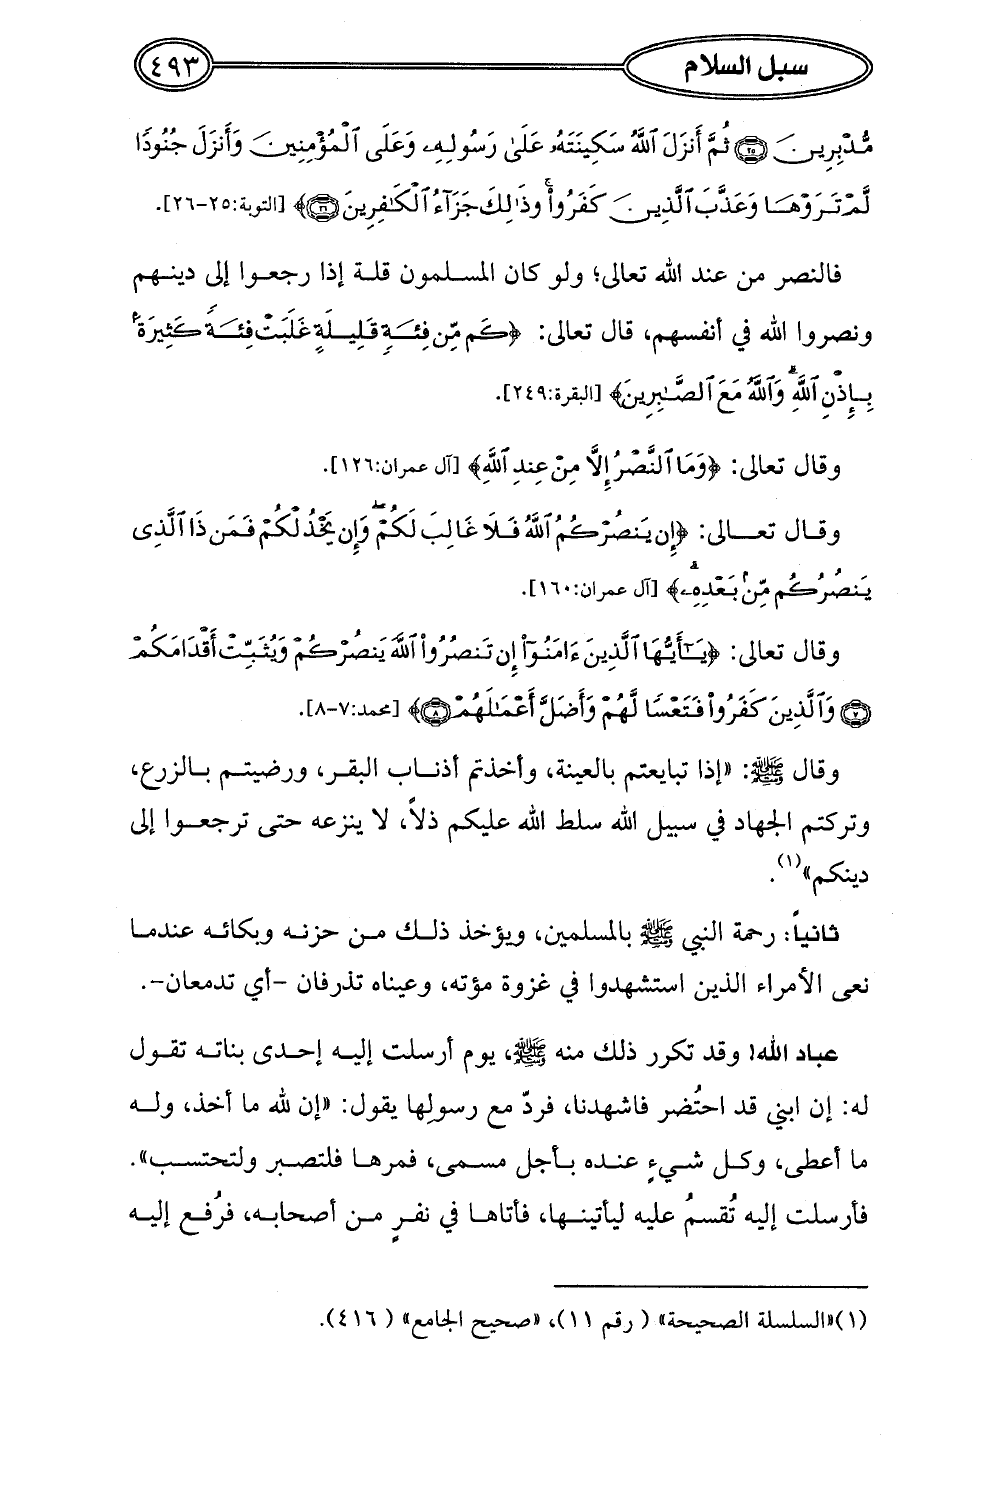 سبل السلام ٤٩٣
مُّدْبِرِينَ ﴿٢٥﴾ ثُمَّ أَنزَلَ ٱللَّهُ سَكِينَتَهُۥ عَلَىٰ رَسُولِهِۦ وَعَلَى ٱلْمُؤْمِنِينَ وَأَنزَلَ جُنُودًا
لَّمْ تَرَوْهَا وَعَذَّبَ ٱلَّذِينَ كَفَرُوا۟ ۚ وَذَٰلِكَ جَزَآءُ ٱلْكَٰفِرِينَ ﴿٢٦﴾﴾ [التوبة:٢٥-٢٦].
فالنصر من عند الله تعالى؛ ولو كان المسلمون قلة إذا رجعوا إلى دينهم
ونصروا الله في أنفسهم، قال تعالى: ﴿كَم مِّن فِئَةٍ قَلِيلَةٍ غَلَبَتْ فِئَةً كَثِيرَةًۢ
بِإِذْنِ ٱللَّهِ ۗ وَٱللَّهُ مَعَ ٱلصَّٰبِرِينَ﴾ [البقرة:٢٤٩].
وقال تعالى: ﴿وَمَا ٱلنَّصْرُ إِلَّا مِنْ عِندِ ٱللَّهِ﴾ [آل عمران:١٢٦].
وقال تعالى: ﴿إِن يَنصُرْكُمُ ٱللَّهُ فَلَا غَالِبَ لَكُمْ ۖ وَإِن يَخْذُلْكُمْ فَمَن ذَا ٱلَّذِى
يَنصُرُكُم مِّنۢ بَعْدِهِۦ ۗ﴾ [آل عمران:١٦٠].
وقال تعالى: ﴿يَٰٓأَيُّهَا ٱلَّذِينَ ءَامَنُوٓا۟ إِن تَنصُرُوا۟ ٱللَّهَ يَنصُرْكُمْ وَيُثَبِّتْ أَقْدَامَكُمْ
﴿٧﴾ وَٱلَّذِينَ كَفَرُوا۟ فَتَعْسًا لَّهُمْ وَأَضَلَّ أَعْمَٰلَهُمْ ﴿٨﴾﴾ [محمد:٧-٨].
وقال ﷺ: «إذا تبايعتم بالعينة، وأخذتم أذناب البقر، ورضيتم بالزرع،
وتركتم الجهاد في سبيل الله سلط الله عليكم ذلاً، لا ينزعه حتى ترجعوا إلى
دينكم»(١).
ثانياً: رحمة النبي ﷺ بالمسلمين، ويؤخذ ذلك من حزنه وبكائه عندما
نعى الأمراء الذين استشهدوا في غزوة مؤته، وعيناه تذرفان -أي تدمعان-.
عباد الله! وقد تكرر ذلك منه ﷺ، يوم أرسلت إليه إحدى بناته تقول
له: إن ابني قد احتُضر فاشهدنا، فردّ مع رسولها يقول: «إن لله ما أخذ، وله
ما أعطى، وكل شيءٍ عنده بأجل مسمى، فمرها فلتصبر ولتحتسب».
فأرسلت إليه تُقسمُ عليه ليأتينها، فأتاها في نفرٍ من أصحابه، فرُفع إليه
(١)«السلسلة الصحيحة» ( رقم ١١)، «صحيح الجامع» ( ٤١٦).